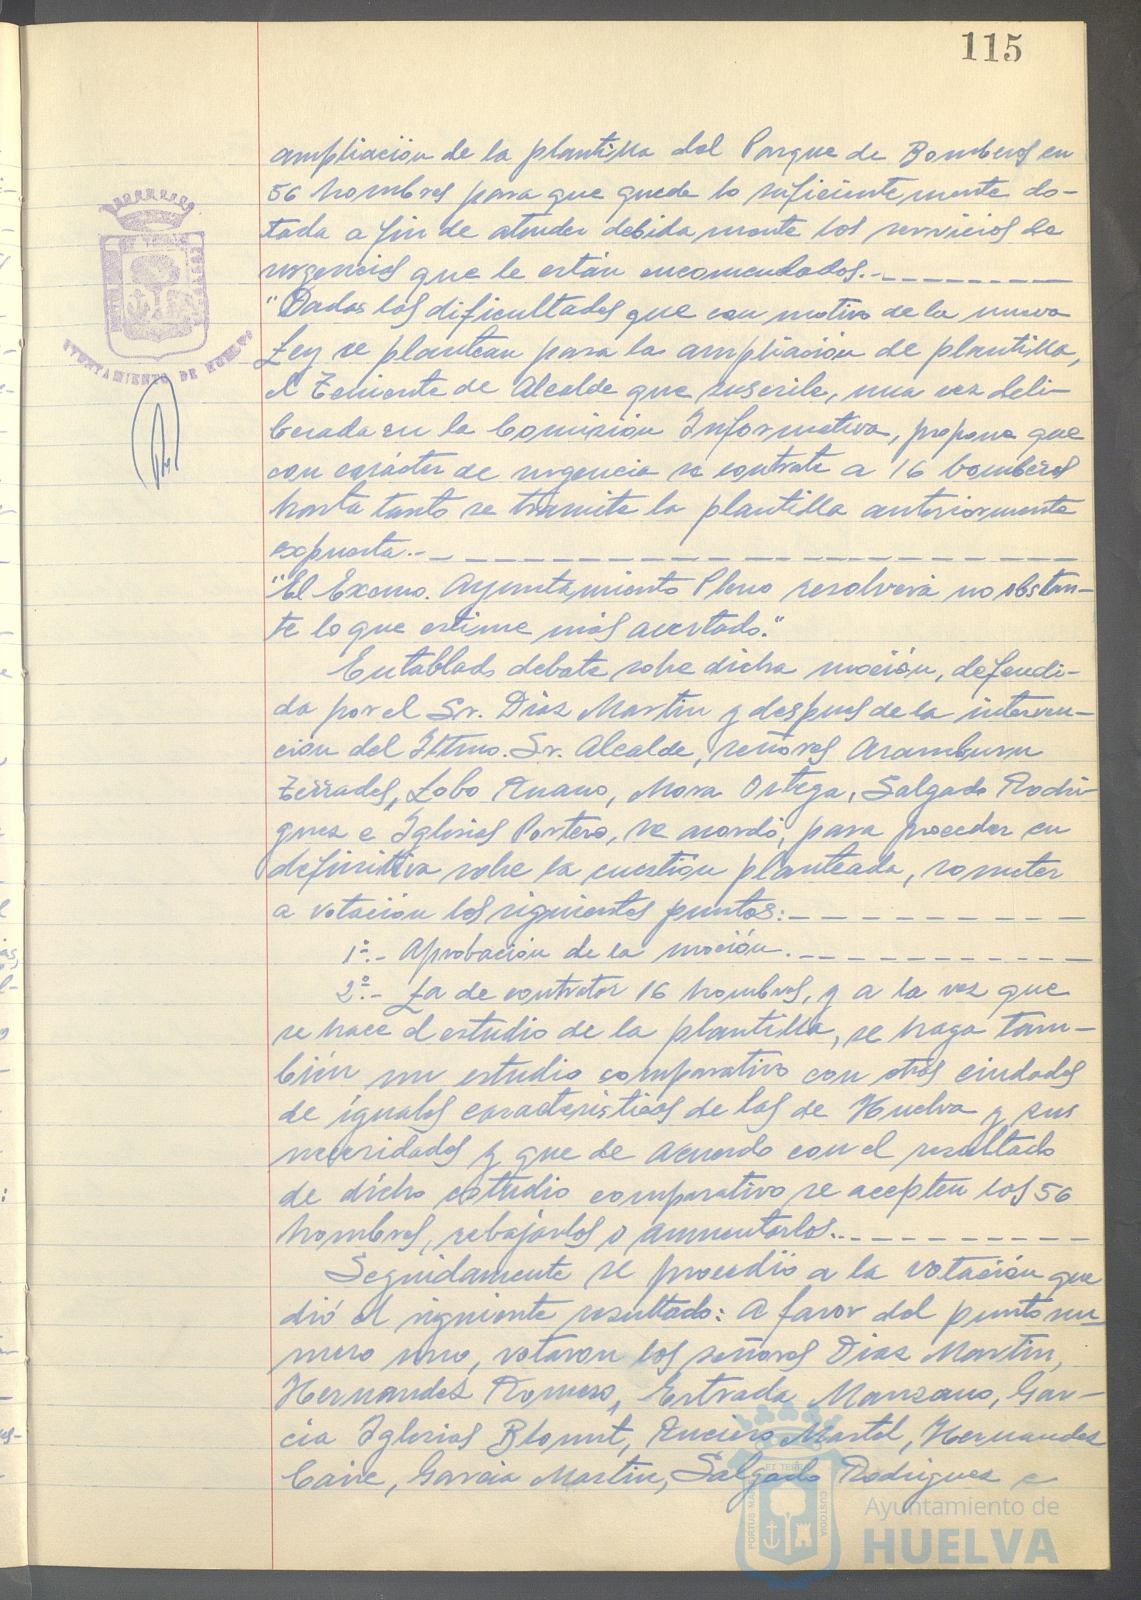 115
ampliación de la plantilla del Parque de Bomberos en
56 hombres para que quede lo suficientemente do-
tada a fin de atender debidamente los servicios de
urgencias que le están encomendados.-
"Dadas las dificultades que con motivo de la nueva
Ley se plantean para la ampliación de plantilla,
el Teniente de Alcalde que suscribe, una vez deli-
berada en la Comisión Informativa, propone que
con carácter de urgencia se contrate a 16 bomberos
hasta tanto se tramita la plantilla anteriormente
expuesta.-
"El Excmo. Ayuntamiento Pleno resolverá no obstan-
te lo que estime más acertado."
Entablado debate sobre dicha moción, defendi-
da por el Sr. Diaz Martin y despues de la interven-
ción del Iltmo. Sr. Alcalde, señores Aramburu
Terrades, Lobo Ruano, Mora Ortega, Salgado Rodri-
guez e Iglesias Portero, se acordó, para proceder en
definitiva sobre la cuestión planteada, someter
a votación los siguientes puntos:-
1º.- Aprobación de la moción.-
2º.- La de contratar 16 hombres, y a la vez que
se hace el estudio de la plantilla, se haga tam-
bién un estudio comparativo con otras ciudades
de iguales caracteristicas de las de Huelva y sus
necesidades y que de acuerdo con el resultado
de dicho estudio comparativo se acepten los 56
hombres, rebajarlos o aumentarlos.-
Seguidamente se procedió a la votación que
dió el siguiente resultado: A favor del punto nu-
mero uno, votaron los señores Diaz Martin,
Hernandez Romero, Estrada Manzano, Gar-
cia Iglesias Blount, Rucero Martel, Hernandez
Caire, Garcia Martin, Salgado Rodriguez e
AYUNTAMIENTO DE HUELVA
PORTUS MARIS ET TERRAE CUSTODIA
Ayuntamiento de
HUELVA